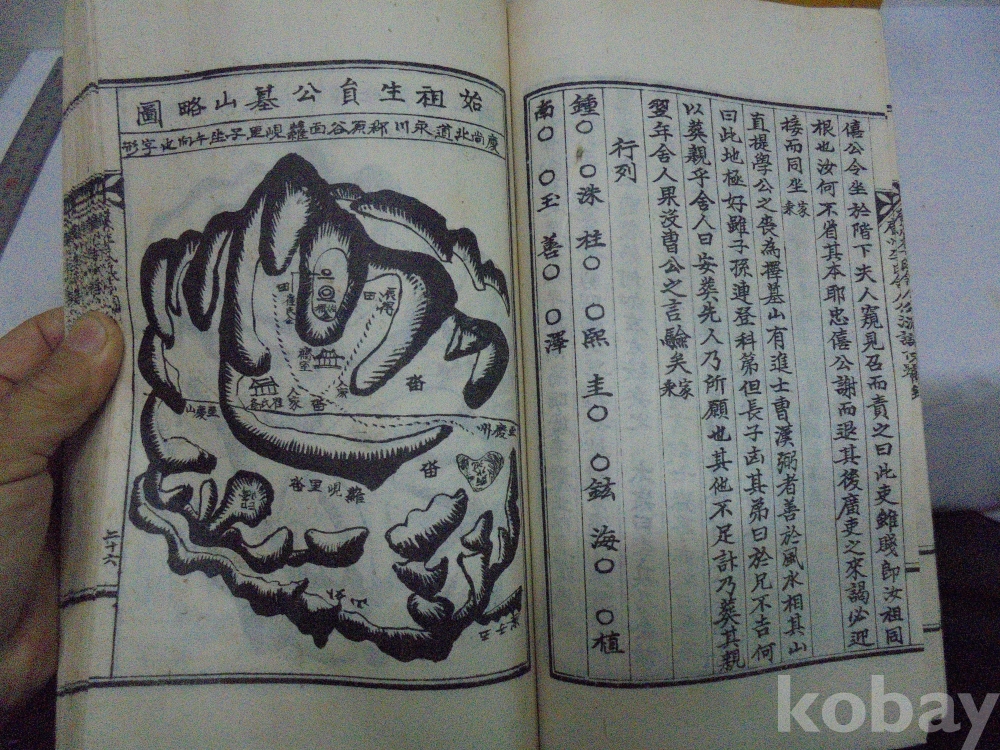 僖公令坐於階下夫人窺見召而責之曰此吏雖賤即汝祖同
根也汝何不省其本耶忠僖公謝而退其後廣吏之來謁必迎
接而同坐家乘
直提學公之喪為擇墓山有進士曹漢弼者善於風水相其山
曰此地極好雖子孫連登科第但長子凶其弟曰於兄不吉何
以葬親乎舍人曰安葬先人乃所願也其他不足計乃葬其親
翌年舍人果沒曹公之言驗矣家乘
行列
鍾〇 〇洙 柱〇 〇熙 圭〇 〇鉉 海〇 〇植
南〇 〇玉 善〇 〇澤
始祖生員公墓山略圖
慶尚北道永川郡原谷面蘿峴里子坐午向
田
田
齋室
人家
人家
畓
畓
畓
蘿峴里畓
二十六
kobay